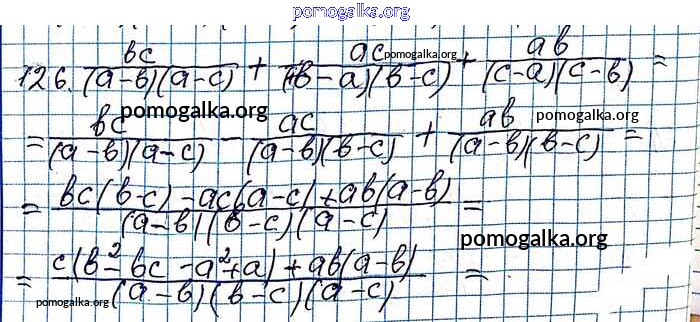 pomogalka.org
126. bc/((a-b)(a-c)) + ac/((b-a)(b-c)) + ab/((c-a)(c-b)) =
pomogalka.org
pomogalka.org
= bc/((a-b)(a-c)) - ac/((a-b)(b-c)) + ab/((a-b)(b-c)) =
pomogalka.org
= (bc(b-c) - ac(a-c) + ab(a-b))/((a-b)(b-c)(a-c)) =
pomogalka.org
= (c(b²-bc-a²+a) + ab(a-b))/((a-b)(b-c)(a-c)) =
pomogalka.org
pomogalka.org